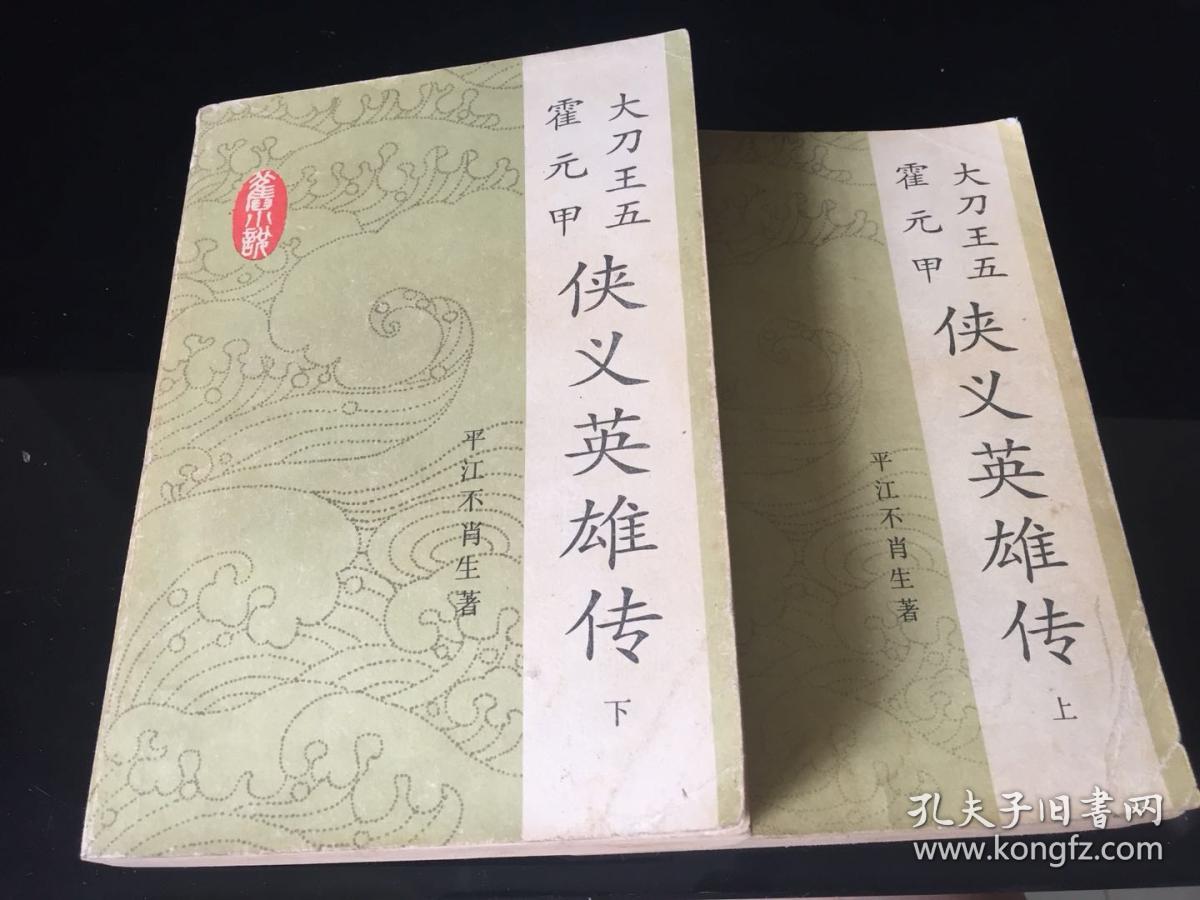 大刀王五
霍元甲
侠义英雄传
下
平江不肖生著
舊小說
大刀王五
霍元甲
侠义英雄传
上
平江不肖生著
孔夫子旧书网
www.kongfz.com